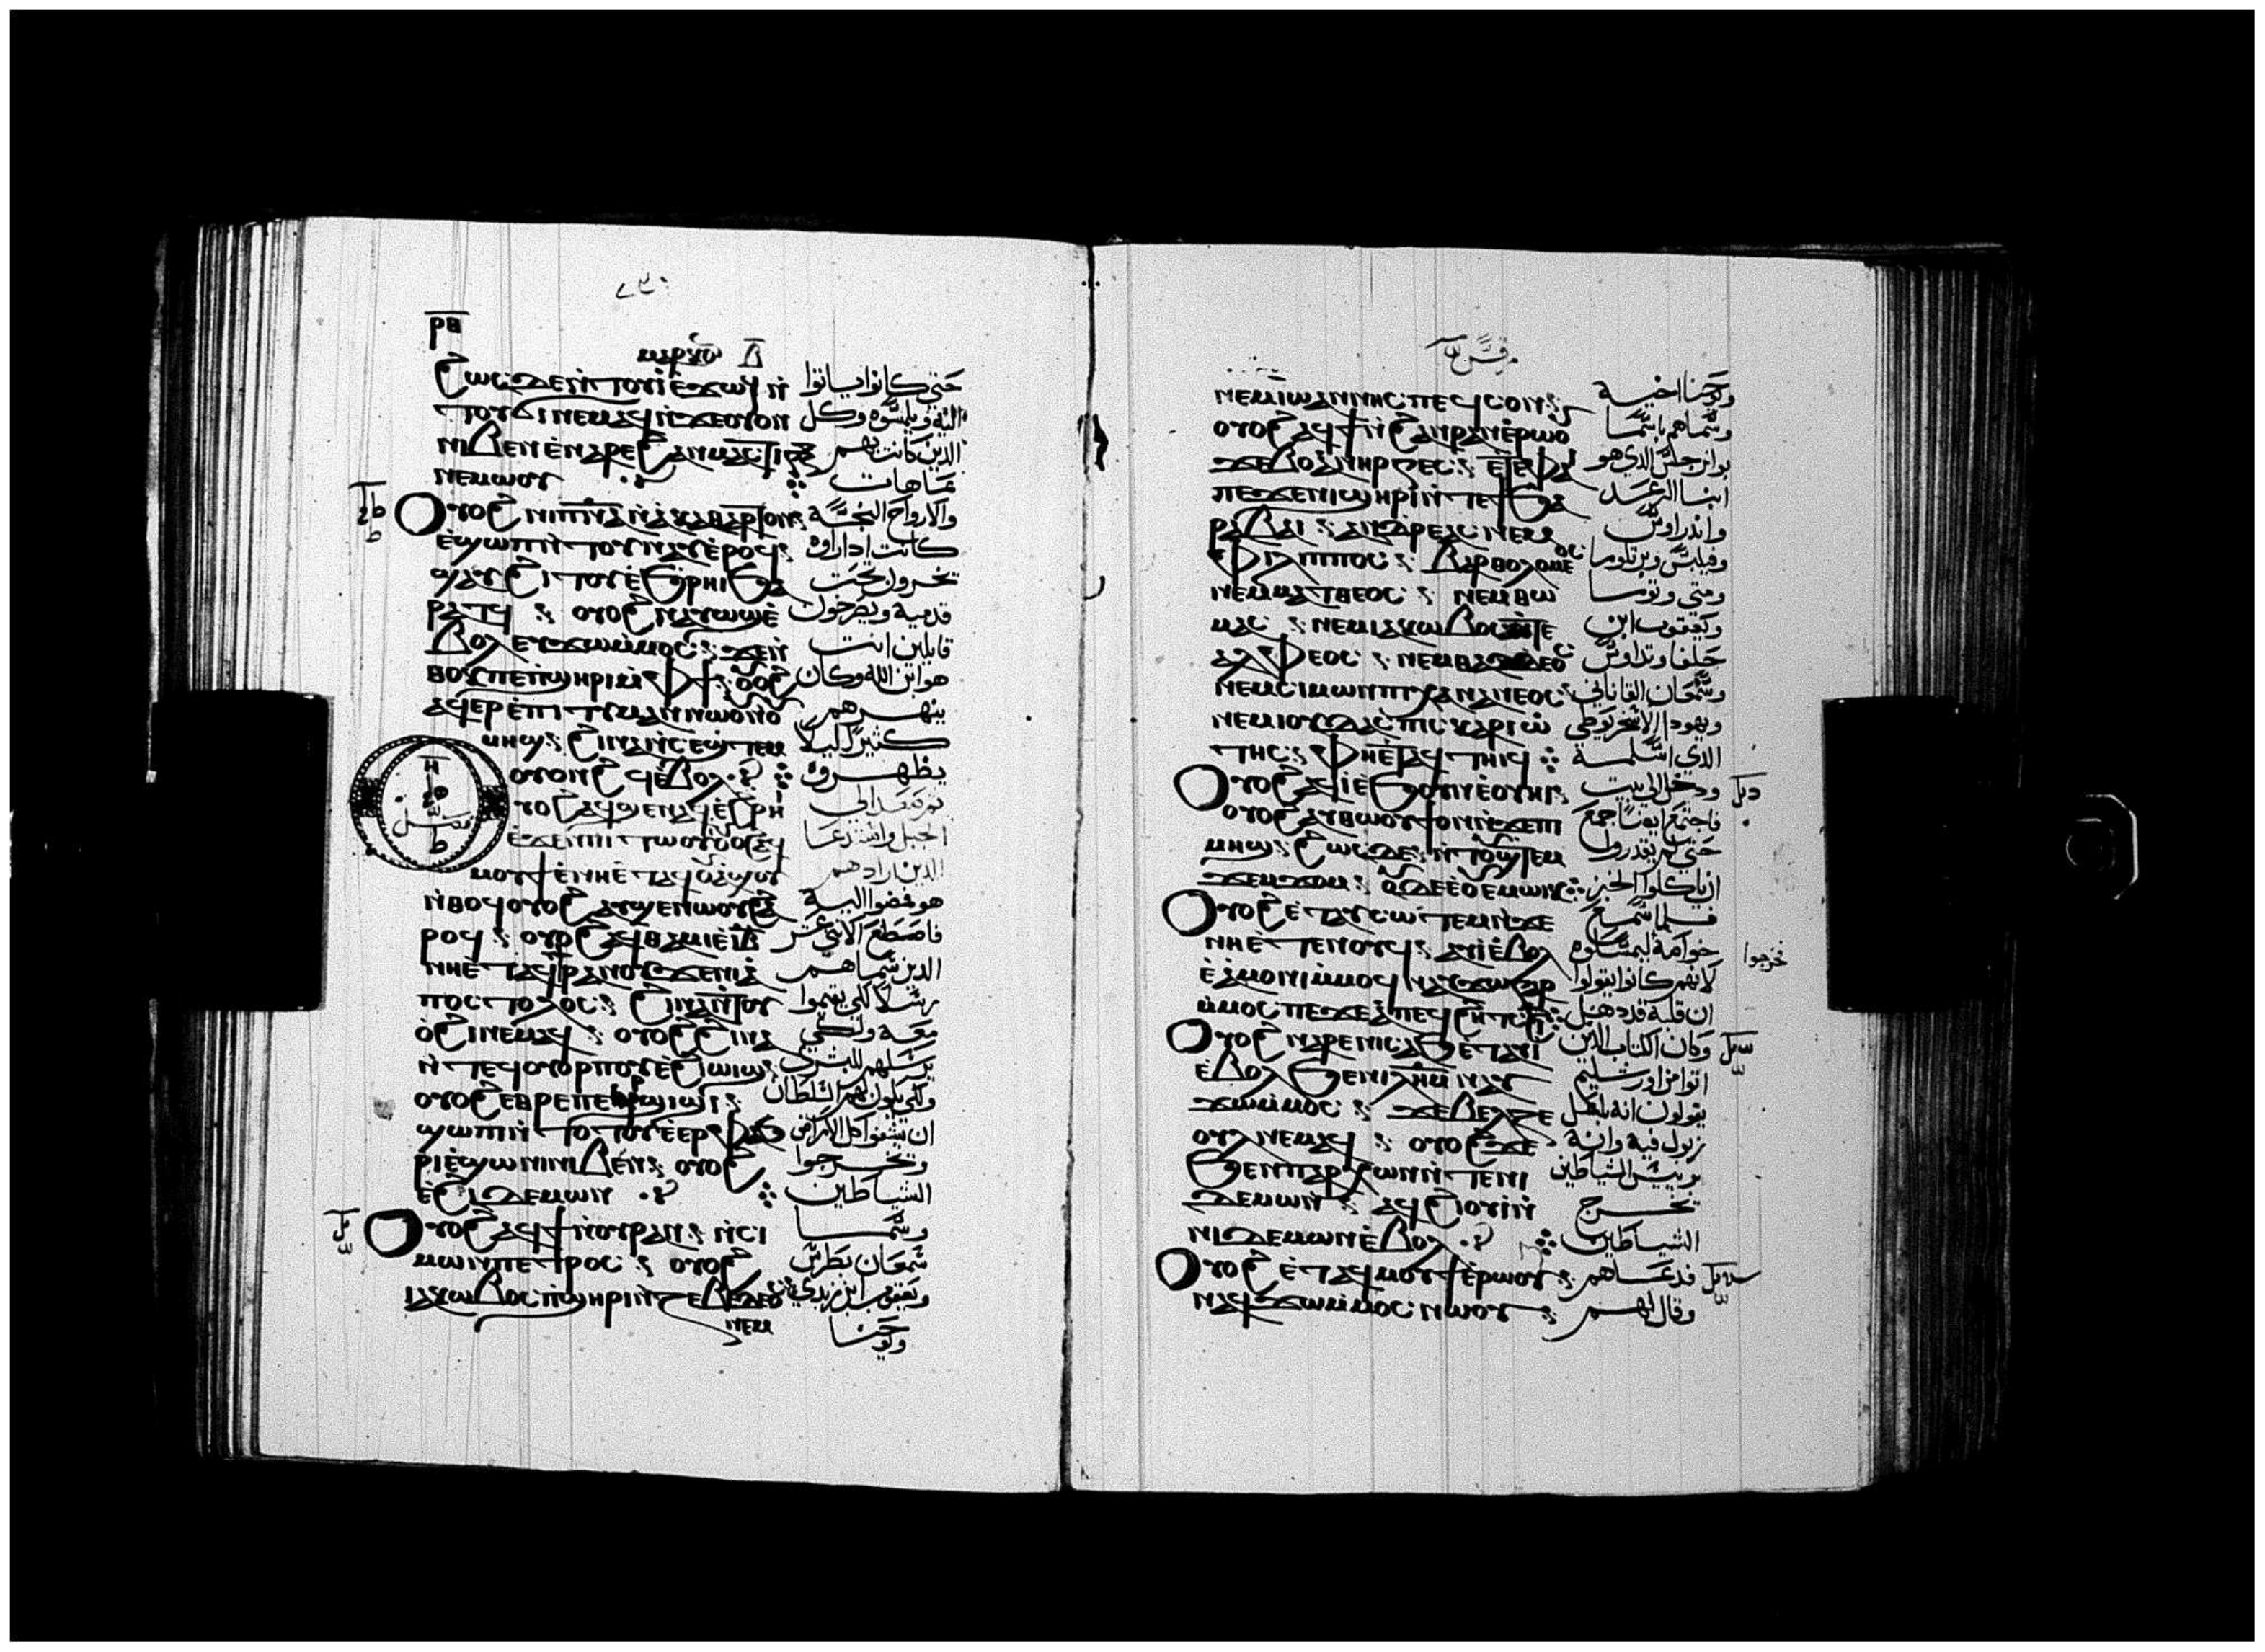 ⲣⲃ
ⲙⲁⲣⲕⲟⲛ ⲇ
ϩⲱⲥⲇⲉ ⲛ̀ⲧⲟⲩⲓ̀ ⲉ̀ϫⲱϥ ⲛ̀ حتي كانوا ياتوا
ⲧⲟⲩϭⲓ ⲛⲉⲙⲁϥ ⲛ̀ϫⲉⲟⲩⲟⲛ اليه ويلمسوه وكل
ⲛⲓⲃⲉⲛ ⲉ̀ⲛⲁⲣⲉ ϩⲁⲛⲙⲁⲥⲧⲓⲅⲝ الذين كانت بهم
ⲛⲉⲙⲱⲟⲩ عاهات
ⲟⲩⲟϩ ⲛⲓⲡⲛ̅ⲁ̅ ⲛ̀ⲁⲕⲁⲑⲁⲣⲧⲟⲛ والارواح النجسة
ⲉ̀ϣⲱⲡ ⲛ̀ⲧⲟⲩⲛⲁⲩ ⲉ̀ⲣⲟϥ كانت اذا راوه
ϣⲁⲩϩⲓⲧⲟⲩ ⲉ̀ϧⲣⲏⲓ ϧⲁ يخرون تحت
ⲣⲁⲧϥ ⲟⲩⲟϩ ⲛⲁⲩⲱϣ ⲉ̀ قدميه ويصرخون
ⲃⲟⲗ ⲉⲩϫⲱ ⲙ̀ⲙⲟⲥ ϫⲉⲛ̀ قايلين انت
ⲑⲟⲕ ⲡⲉ ⲡϣⲏⲣⲓ ⲙ̀ⲫϯ ⲟⲩⲟϩ هو ابن الله وكان
ⲁϥⲉⲣⲉ̀ⲡⲓⲧⲓⲙⲁⲛ ⲛⲱⲟⲩ ⲛ̀ⲟ ينهرهم
ⲙⲏϣ ϩⲓⲛⲁ ⲛ̀ⲥⲉϣⲧⲉⲙ كثيرا ليلا
ⲟⲩⲟⲛϩϥ ⲉ̀ⲃⲟⲗ يظهروه
ⲟⲩⲟϩ ⲁϥϣⲉⲛⲁϥ ⲉ̀ϩⲣⲏⲓ ثم صعد الي
ⲉ̀ϫⲉⲛ ⲡⲓⲧⲱⲟⲩ ⲟⲩⲟϩ ⲁϥ الجبل واستدعا
ⲙⲟⲩϯ ⲉ̀ⲛⲏⲉ̀ⲧⲁϥⲟⲩⲁϣⲟⲩ الذين ارادهم
ⲛ̀ⲑⲟϥ ⲟⲩⲟϩ ⲁⲩϣⲉⲛⲱⲟⲩ ϩⲁ هو فمضوا اليه
ⲣⲟϥ ⲟⲩⲟϩ ⲁϥⲑⲁⲙⲓⲉ̀ ⲓ̅ⲃ̅ فاصطنع الاثني عشر
ⲛⲏⲉ̀ⲧⲁϥϯⲣⲁⲛⲟⲩ ϫⲉⲛⲓⲁ الذين سماهم
ⲡⲟⲥⲧⲟⲗⲟⲥ ϩⲓⲛⲁ ⲛ̀ⲧⲟⲩ رسلا لكي يقيموا
ⲟ̀ϩⲓ ⲛⲉⲙⲁϥ ⲟⲩⲟϩ ϩⲓⲛⲁ معه ولكي
ⲛ̀ⲧⲉϥⲟⲩⲟⲣⲡⲟⲩ ⲉ̀ϩⲓⲱⲓϣ يرسلهم للبشري
ⲟⲩⲟϩ ⲉⲑⲣⲉ ⲡⲉⲣϣⲓϣⲓ ولكي يكون لهم السلطان
ϣⲱⲡⲓ ⲛ̀ⲧⲟⲧⲟⲩ ⲉ̀ⲉⲣⲫⲁϧ ان يشفوا كل الامراض
ⲣⲓ ⲉ̀ϣⲱⲛⲓ ⲛⲓⲃⲉⲛ ⲟⲩⲟϩ ويخرجوا
ⲉ̀ϩⲓⲇⲉⲙⲱⲛ الشياطين
ⲟⲩⲟϩ ⲁϥϯ ⲛ̀ⲟⲩⲣⲁⲛ ⲛ̀ⲥⲓ وسما
ⲙⲱⲛ ⲡⲉⲧⲣⲟⲥ ⲟⲩⲟϩ سمعان بطرس
ⲓⲁⲕⲱⲃⲟⲥ ⲡϣⲏⲣⲓ ⲛ̀ⲍⲉⲃⲉⲇⲉⲟⲥ ويعقوب ابن زبدي
ⲛⲉⲙ ويوحنا
مرقس
ⲛⲉⲙ ⲓⲱⲁⲛⲛⲏⲥ ⲡⲉϥⲥⲟⲛ ويوحنا اخيه
ⲟⲩⲟϩ ⲁϥϯ ⲛ̀ϩⲁⲛⲣⲁⲛ ⲉ̀ⲣⲱⲟⲩ وسماهم باسما
ϫⲉⲃⲟⲁⲛⲏⲣⲅⲉⲥ ⲉ̀ⲧⲉ ⲫⲁⲓ بوانرجس الذي هو
ⲡⲉ ϫⲉⲛⲓϣⲏⲣⲓ ⲛ̀ⲧⲉ ϯϧⲁ ابنا الرعد
ⲣⲁⲃⲁⲓ ⲁⲛⲇⲣⲉⲁⲥ ⲛⲉⲙ واندراوس
ⲫⲓⲗⲓⲡⲡⲟⲥ ⲃⲁⲣⲑⲟⲗⲟⲙⲉⲟⲥ وفيلبس وبرتلوما
ⲛⲉⲙ ⲙⲁⲧⲑⲉⲟⲥ ⲛⲉⲙ ⲑⲱ ومتي وتوما
ⲙⲁⲥ ⲛⲉⲙ ⲓⲁⲕⲱⲃⲟⲥ ⲛ̀ⲧⲉ ويعقوب ابن
ⲁⲗⲫⲉⲟⲥ ⲛⲉⲙ ⲑⲁⲇⲇⲉⲟⲥ حلفا وتداوس
ⲛⲉⲙ ⲥⲓⲙⲱⲛ ⲡⲓⲕⲁⲛⲁⲛⲉⲟⲥ وسمعان القاناني
ⲛⲉⲙ ⲓⲟⲩⲇⲁⲥ ⲡⲓⲥⲕⲁⲣⲓⲱ ويهودا الاسخريوطي
ⲧⲏⲥ ⲫⲏⲉ̀ⲧⲁϥⲧⲏⲓϥ الذي اسلمه
ⲟⲩⲟϩ ⲁϥⲓ̀ ⲉ̀ϧⲟⲩⲛ ⲉ̀ⲟⲩⲏⲓ ودخل الي بيت
ⲟⲩⲟϩ ⲁⲩⲑⲱⲟⲩϯ ⲟⲛ ⲛ̀ϫⲉⲡⲓ فاجتمع ايضا جمع
ⲙⲏϣ ϩⲱⲥⲇⲉ ⲛ̀ⲧⲟⲩϣⲧⲉⲙ حتي لم يقدروا
ϫⲉⲙϫⲟⲙ ⲟⲩⲇⲉ ⲉ̀ⲟⲩⲉⲙⲱⲓⲕ ان ياكلوا الخبز
ⲟⲩⲟϩ ⲉ̀ⲧⲁⲩⲥⲱⲧⲉⲙ ⲛ̀ϫⲉ فلما سمع
ⲛⲏⲉ̀ⲧⲉⲛⲟⲩϥ ⲁⲩⲓ̀ ⲉ̀ⲃⲟⲗ خواصه ليمسكوه
فخرجوا
ⲉ̀ⲁ̀ⲙⲟⲛⲓ ⲙ̀ⲙⲟϥ ⲛⲁⲩϫⲱ ⲅⲁⲣ لانهم كانوا يقولوا
ⲙ̀ⲙⲟⲥ ⲡⲉ ϫⲉⲁ̀ ⲡⲉϥϩⲏⲧ ⲥⲓϩⲓ ان قلبه قد دهل
ⲟⲩⲟϩ ⲛⲁⲣⲉ ⲛⲓⲥⲁϧ ⲉ̀ⲧⲁⲩⲓ̀ وكان الكتاب الذين
ⲉ̀ⲃⲟⲗ ϧⲉⲛ ⲓⲗⲏⲙ ⲛⲁⲩ اتوا من اورشليم
ϫⲱ ⲙ̀ⲙⲟⲥ ϫⲉⲃⲉⲗⲍⲉ يقولون انه باعل
ⲃⲟⲩⲗ ⲛⲉⲙⲁϥ ⲟⲩⲟϩ ϫⲉ زبول فيه وانه
ϧⲉⲛ ⲡⲁⲣⲭⲱⲛ ⲛ̀ⲧⲉ ⲛⲓ برييس الشياطين
ⲇⲉⲙⲱⲛ ⲁϥϩⲓⲟⲩⲓ̀ ⲛ̀ يخرج
ⲛⲓⲇⲉⲙⲱⲛ ⲉ̀ⲃⲟⲗ الشياطين
ⲟⲩⲟϩ ⲉ̀ⲧⲁϥⲙⲟⲩϯ ⲉ̀ⲣⲱⲟⲩ فدعاهم
ⲛⲁϥϫⲱ ⲙ̀ⲙⲟⲥ ⲛⲱⲟⲩ وقال لهم